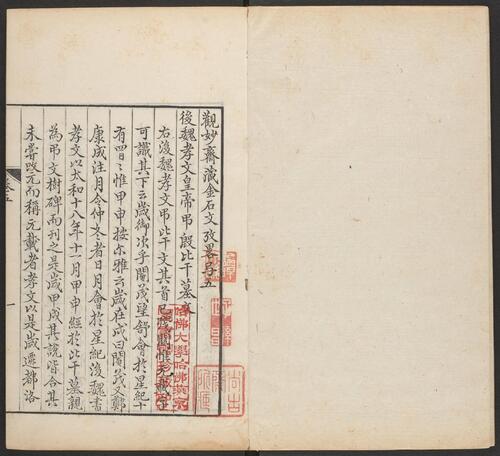 觀妙齋藏金石文攷畧卷五
後魏孝文皇帝弔殷比干墓文
右後魏孝文弔比干文其首已殘闕惟元載字
可識其下云歲御次乎閹茂望舒會於星紀十
有四日惟甲申按尔雅云歲在戌曰閹茂又鄭
康成注月令仲冬者日月會於星紀後魏書
孝文以太和十八年十一月甲申經於比干墓親
為弔文樹碑而刊之是歲甲戌其說皆合其
未嘗改元而稱元載者孝文以是歲遷都洛
卷五
一
哈佛大學哈佛燕京